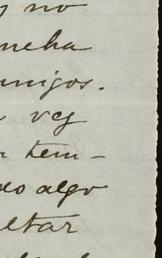 y no
ncha
amigos.
vez
tem-
do algo
ltar